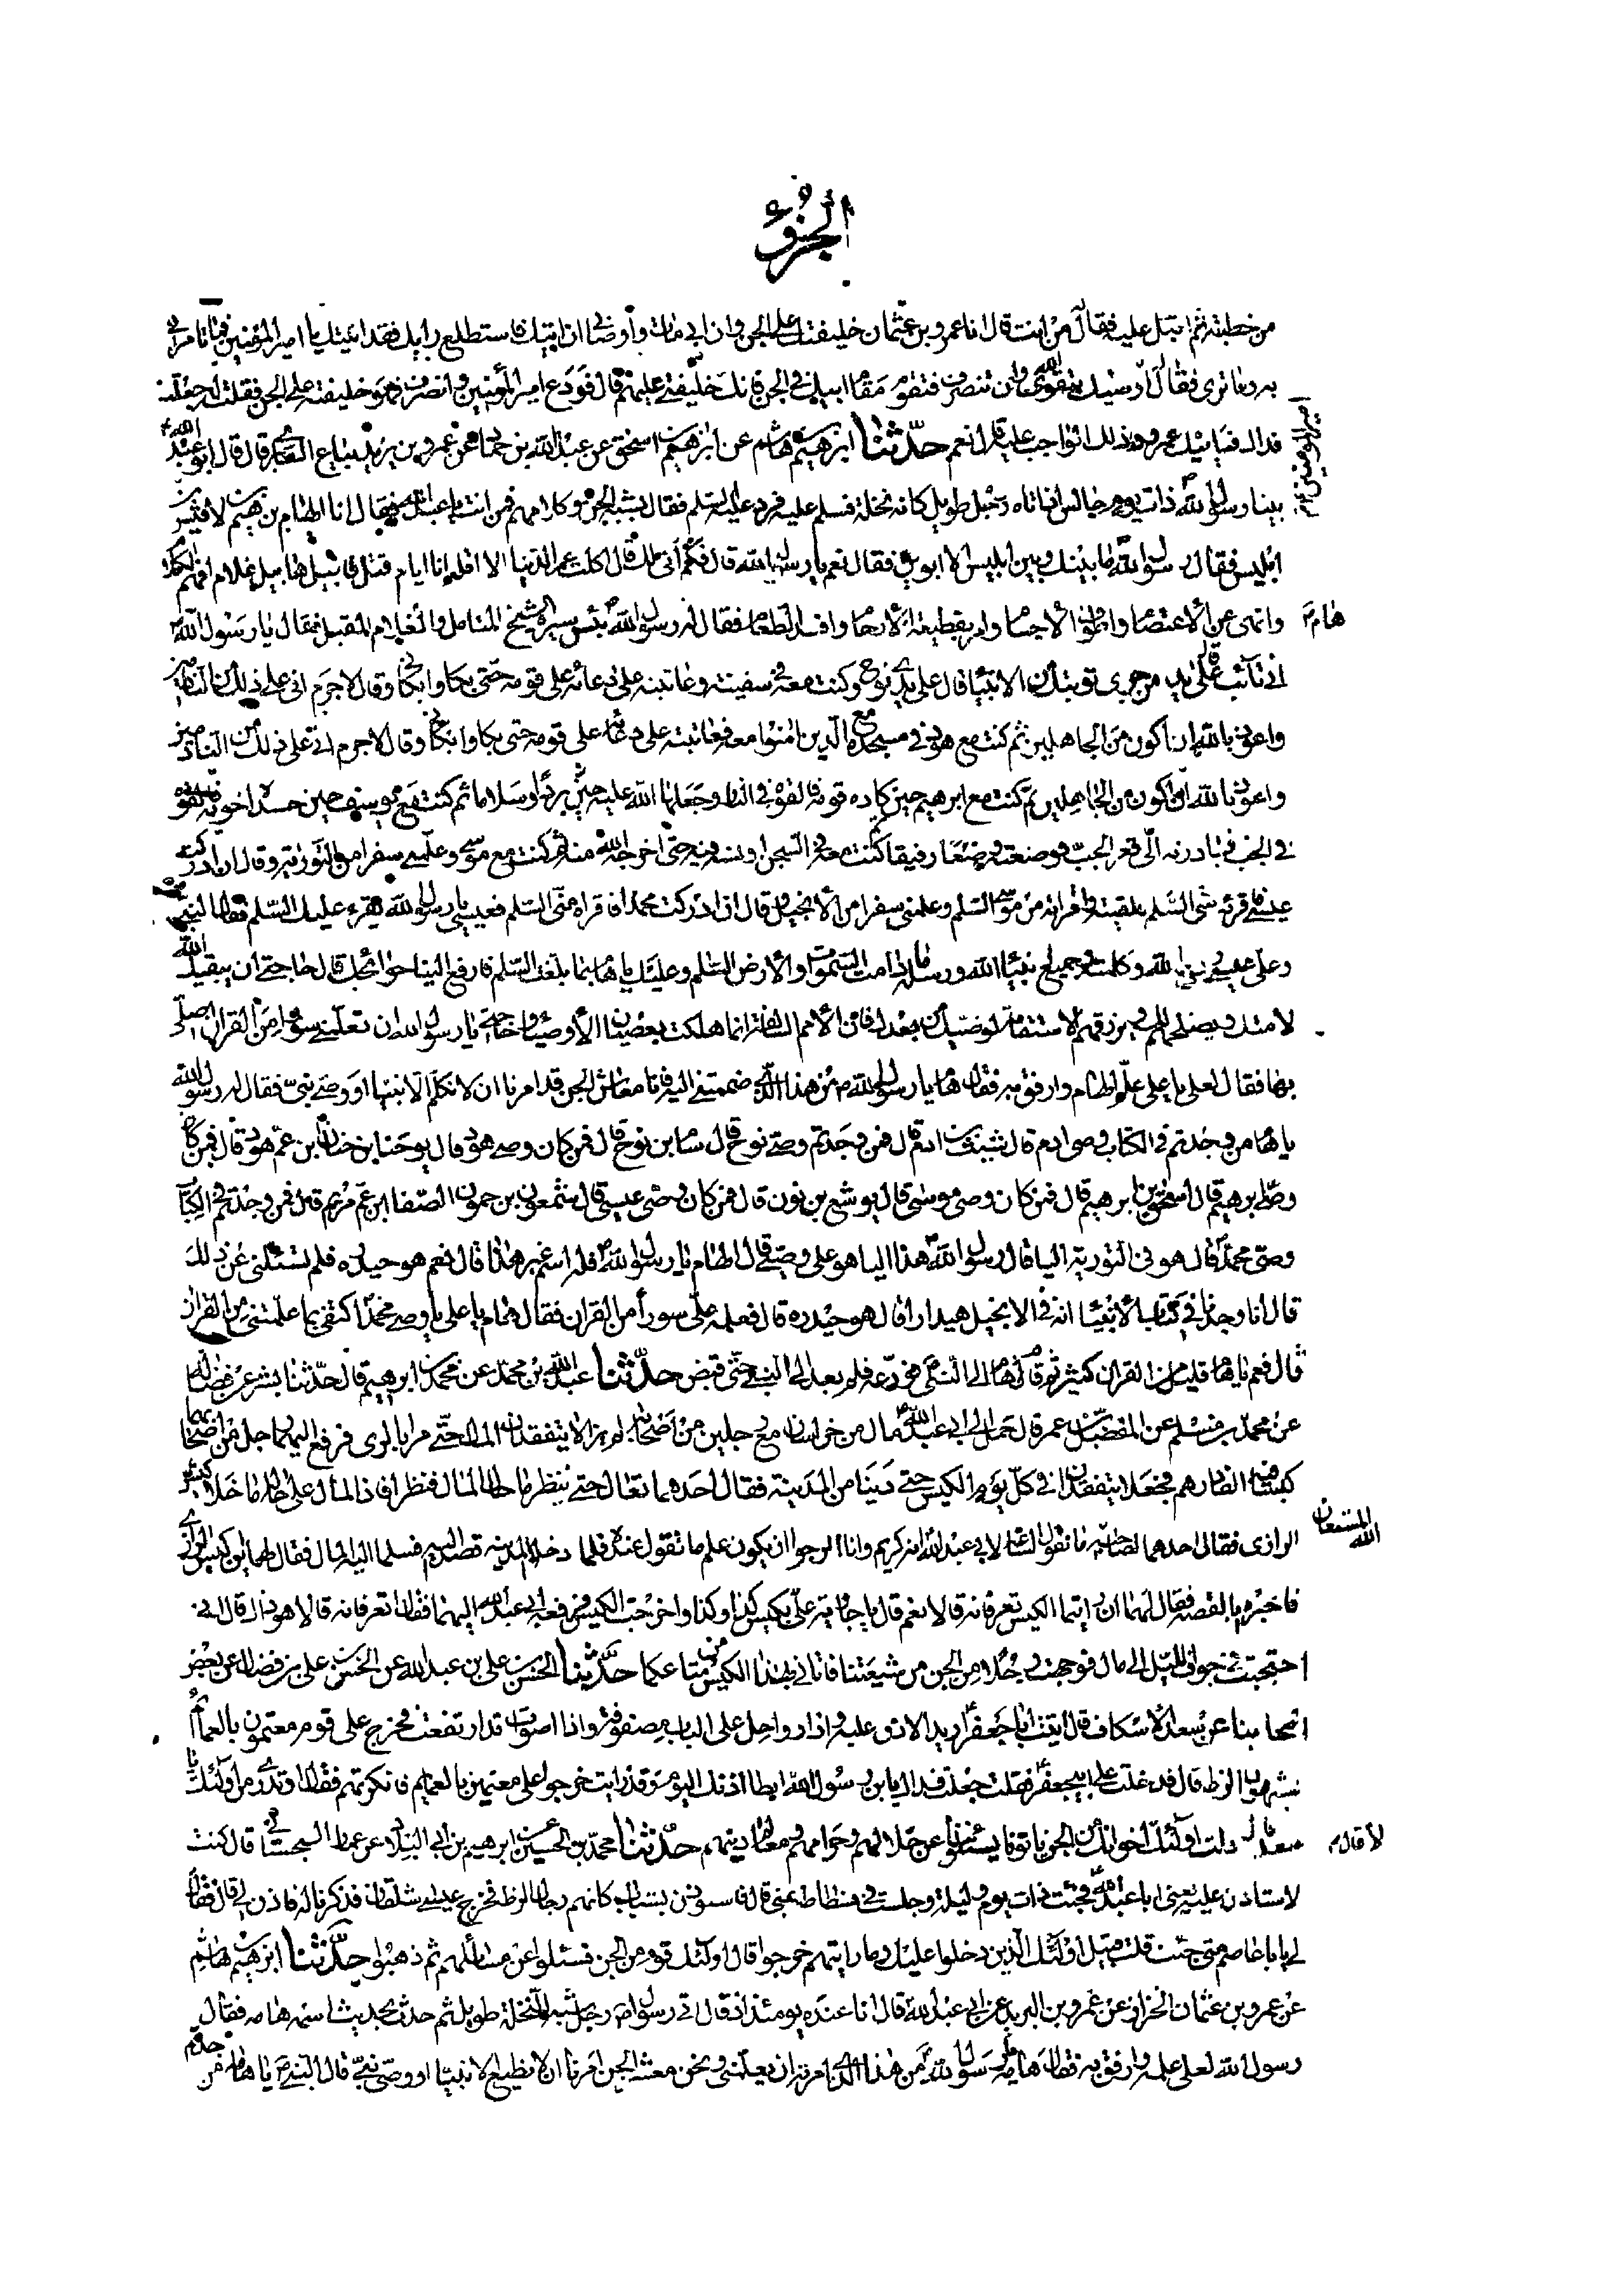 الجزؤ
من خطبته ثم اقبل عليه فقال من انت قال انا عمرو بن عثمان خليفتك على الجن وان ابى مات واوصانى ان اتيك فاستطلع رايك فقد اتيتك يا امير المؤمنين فما تامرنى
به وما ترى فقال اوصيك بتقوى الله وان تنصرف فتقوم مقام ابيك فى الجن فانك خليفتى عليهم قال فودع امير المؤمنين وانصرف فهو خليفته على الجن فقلت له جعلت
فداك فياتيك عمرو وذلك الواجب عليه قال نعم حدثنا ابرهيم بن هاشم عن ابرهيم بن اسحق عن عبد الله بن حماد عن عمرو بن يزيد بياع السابرى قال قال ابو عبد الله
بينا رسول الله ذات يوم جالس اذ اتاه رجل طويل كانه نخلة فسلم عليه فرد عليه السلم فقال يشبه الجن وكلامهم فمن انت يا عبد الله فقال انا الهام بن هيم بن لاقيس بن
ابليس فقال رسول الله ما بينك وبين ابليس الا ابوين فقال نعم يا رسول الله قال فكم اتى لك قال اكلت عمر الدنيا الا اقله انا ايام قتل قابيل هابيل غلام افهم الكلام
وانهى عن الاعتصام واطوف الاجام وامر بقطيعة الارحام وافسد الطعام فقال له رسول الله بئس سيرة الشيخ المتامل والغلام المقبل فقال يا رسول الله
هام
انى تائب قال على يد من جرى توبتك من الانبيا قال على يدى نوح وكنت معه فى سفينته وعاتبته على دعائه على قومه حتى بكا وابكانى وقال لاجرم انى على ذلك من النادمين
واعوذ بالله ان اكون من الجاهلين ثم كنت مع هود فى مسجده مع الذين امنوا معه فعاتبته على دعائه على قومه حتى بكا وابكانى وقال لاجرم انى على ذلك من النادمين
واعوذ بالله ان اكون من الجاهلين ثم كنت مع ابرهيم حين كاده قومه فالقوه فى النار وجعلها الله عليه بردا وسلاما ثم كنت مع يوسف حين حسده اخوته فالقوه
فى الجب فبادرته الى قعر الجب فوضعته وضعا رفيقا ثم كنت معه فى السجن اونسه فيه حتى اخرجه الله منه ثم كنت مع موسى وعلمنى سفرا من التورية وقال ان ادركت
عيسى فاقرئه منى السلم فلقيته واقراته من موسى السلم وعلمنى سفرا من الانجيل وقال ان ادركت محمدا فاقراه منى السلم فعيسى يا رسول الله يقرء عليك السلم فقال النبى
وعلى عيسى روح الله وكلمته وجميع انبيا الله ورسله ما دامت السموات والارض السلم وعليك يا هام بما بلغت السلم فارفع الينا حوائجك قال حاجتى ان يبقيك الله
لامتك ويصلحهم لك ويرزقهم الاستقامة لوصيك من بعدك فان الامم السالفة انما هلكت بعصيان الاوصيا وحاجتى يا رسول الله ان تعلمنى سورا من القران اصلى
بها فقال لعلى يا على علم الهام وارفق به فقال هام يا رسول الله من هذا الذى ضممتنى اليه فانا معاشر الجن قد امرنا ان لا نكلم الا نبيا او وصى نبى فقال له رسول الله
يا هام من وجدتم فى الكتاب وصى ادم قال شيث بن ادم قال فمن وجدتم وصى نوح قال سام بن نوح قال فمن كان وصى هود قال يوحنا بن خنان ابن عم هود قال فمن كان
وصى ابرهيم قال اسحق بن ابرهيم قال فمن كان وصى موسى قال يوشع بن نون قال فمن كان وصى عيسى قال شمعون بن حمون الصفا ابن عم مريم قال فمن وجدتم فى الكتاب
وصى محمد قال هو فى التورية اليا قال رسول الله هذا اليا هو على وصيى قال الهام يا رسول الله فله اسم غير هذا قال نعم هو حيدره فلم تسئلنى عن ذلك
قال انا وجدنا فى كتاب الانبيا انه فى الانجيل هيدارا قال هو حيدره قال فعلمه على سورا من القران فقال هام يا على يا وصى محمد اكتفى بما علمتنى من القران
قال نعم يا هام قليل من القران كثير ثم قام هام الى النبى فودعه فلم يعد الى النبى حتى قبض حدثنا عبد الله بن محمد عن محمد بن ابرهيم قال حدثنا بشر عن فضاله
عن محمد بن مسلم عن المفضل بن عمر قال حمل الى ابى عبد الله مال من خراسان مع رجلين من اصحابه لم يزالا يتفقدان المال حتى مرا بالرى فرفع اليهما رجل من اصحابهما
كيسا فيه الفا درهم فجعلا يتفقدان فى كل يوم الكيس حتى دنيا من المدينة فقال احدهما تعال حتى ننظر ما حال المال فنظرا فاذا المال على حاله ما خلا كيس
الرازى فقال احدهما لصاحبه الله المستعان ما نقول الساعة لابى عبد الله انه كريم وانا ارجو ان يكون علم ما نقول عنده فلما دخلا المدينة قصدا اليه فسلما اليه المال فقال لهما اين كيس الرازى
فاخبراه بالقصة فقال لهما ان رايتما الكيس تعرفانه قالا نعم قال يا جارية على بكيس كذا وكذا واخرجت الكيس فدفعه ابو عبد الله اليهما فقال اتعرفانه قالا هو ذاك قال انى
احتجت فى جوف الليل الى مال فوجهت رجلا من الجن من شيعتنا فاتانى بهذا الكيس من متاعكما حدثنا الحسن بن على بن عبد الله عن الحسن بن على بن فضال عن بعض
اصحابنا عن سعد الاسكاف قال اتيت ابا جعفر اريد الاذن عليه واذا رواحل على الباب مصفوفة واذا اصوات قد ارتفعت فخرج على قوم معتمون بالعمائم
يشبهون الزط قال فدخلت على ابى جعفر فقلت جعلت فداك يا بن رسول الله ابطا اذنك اليوم وقد رايت خرجوا على معتمين بالعمايم فانكرتهم فقال او تدرى من اولئك يا
سعد قال قلت لا قال اولئك اخوانك من الجن ياتونا يسئلونا عن حلالهم وحرامهم ومعالم دينهم حدثنا محمد بن الحسين عن ابرهيم بن ابى البلاد عن عمار السجستانى قال كنت
لا استاذن عليه يعنى ابا عبد الله فجئت ذات يوم وليلة وجلست فى فسطاطه بمنى قال فاستوذن بشباب كانهم رجال الزط فخرج عيسى شلقان فذكرنا له فاذن لى قال فقال
لى يا با عاصم متى جئت قلت قبيل اولئك الذين دخلوا عليك وما رايتهم خرجوا قال اولئك قوم من الجن فسئلوا عن مسائلهم ثم ذهبوا حدثنا ابرهيم بن هاشم
عن عمرو بن عثمان الخزاز عن عمرو بن البريد عن ابى عبد الله قال انا عنده يومئذ اذ قال اتى رسول الله رجل شبه النخلة طويل ثم حدث بحديث اسمه هامه فقال
رسول الله لعلى علمه وارفق به فقال هامه يا رسول الله من هذا الذى امرته ان يعلمنى ونحن معشر الجن امرنا ان لا نطيع الا نبيا او وصى نبى قال النبى يا هامه من